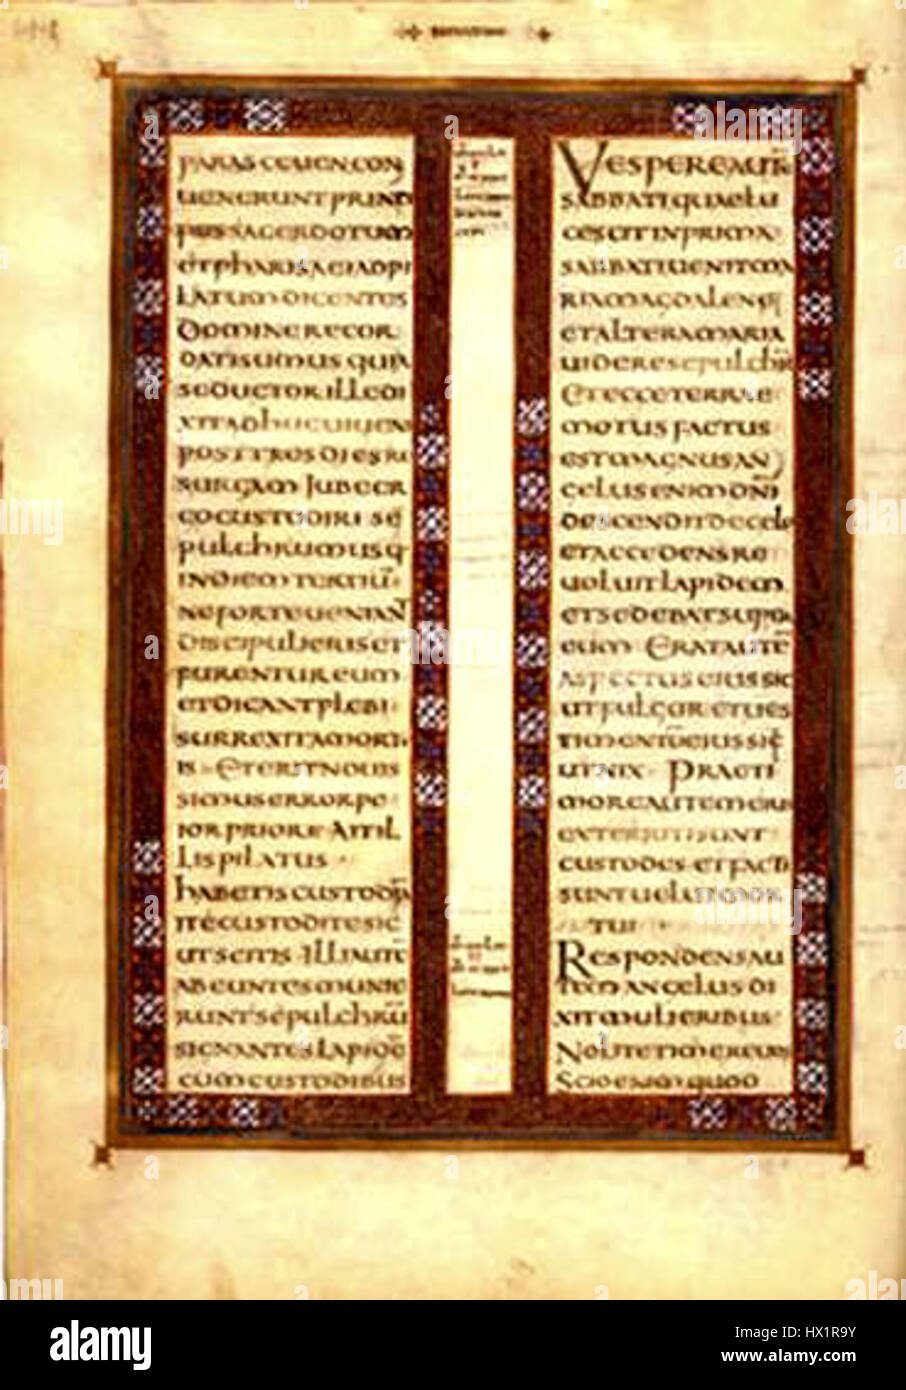 PARASCEUEN CON
UENERUNT PRINCI
PES SACERDOTUM
ET PHARISAEI AD PI
LATUM DICENTES
DOMINE RECOR
DATI SUMUS QUIA
SEDUCTOR ILLE DI
XIT ADHUC UIUENS
POST TRES DIES RE
SURGAM IUBE ER
GO CUSTODIRI SE
PULCHRUM USQ
IN DIEM TERTIŪ
NE FORTE UENIANT
DISCIPULI EIUS ET
FURENTUR EUM
ET DICANT PLEBI
SURREXIT A MORTU
IS · ET ERIT NOUIS
SIMUS ERROR PE
IOR PRIORE · AIT IL
LIS PILATUS
HABETIS CUSTODIĀ
ITE CUSTODITE SIC
UT SCITIS · ILLI AUTĒ
ABEUNTES MUNIE
RUNT SEPULCHRŪ
SIGNANTES LAPIDĒ
CUM CUSTODIBUS
VESPERE AUTĒ
SABBATI QUAE LU
CESCIT IN PRIMA
SABBATI UENIT MA
RIA MAGDALENE
ET ALTERA MARIA
UIDERE SEPULCHRŪ
ET ECCE TERRAE
MOTUS FACTUS
EST MAGNUS AN
GELUS ENIM DNI
DESCENDIT DE CELO
ET ACCEDENS RE
UOLUIT LAPIDEM
ET SEDEBAT SUPER
EUM · ERAT AUTĒ
ASPECTUS EIUS SIC
UT FULGOR ET UES
TIMENTŪ EIUS SIC
UT NIX · PRAE TI
MORE AUTEM EIUS
EXTERRITI SUNT
CUSTODES · ET FACTI
SUNT UELUT MOR
TUI
RESPONDENS AU
TEM ANGELUS DI
XIT MULIERIBUS
NOLITE TIMERE UOS
SCIO ENIM QUOD
alamy
Image ID: HX1R9Y
www.alamy.com